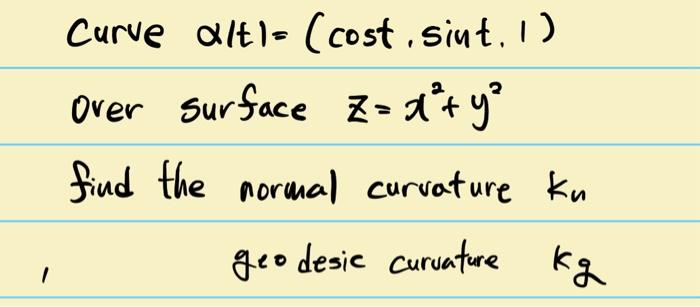 Curve α(t)= (cost, sint, 1)
Over surface z = x²+ y²
find the normal curvature kn
, geodesic curvature kg